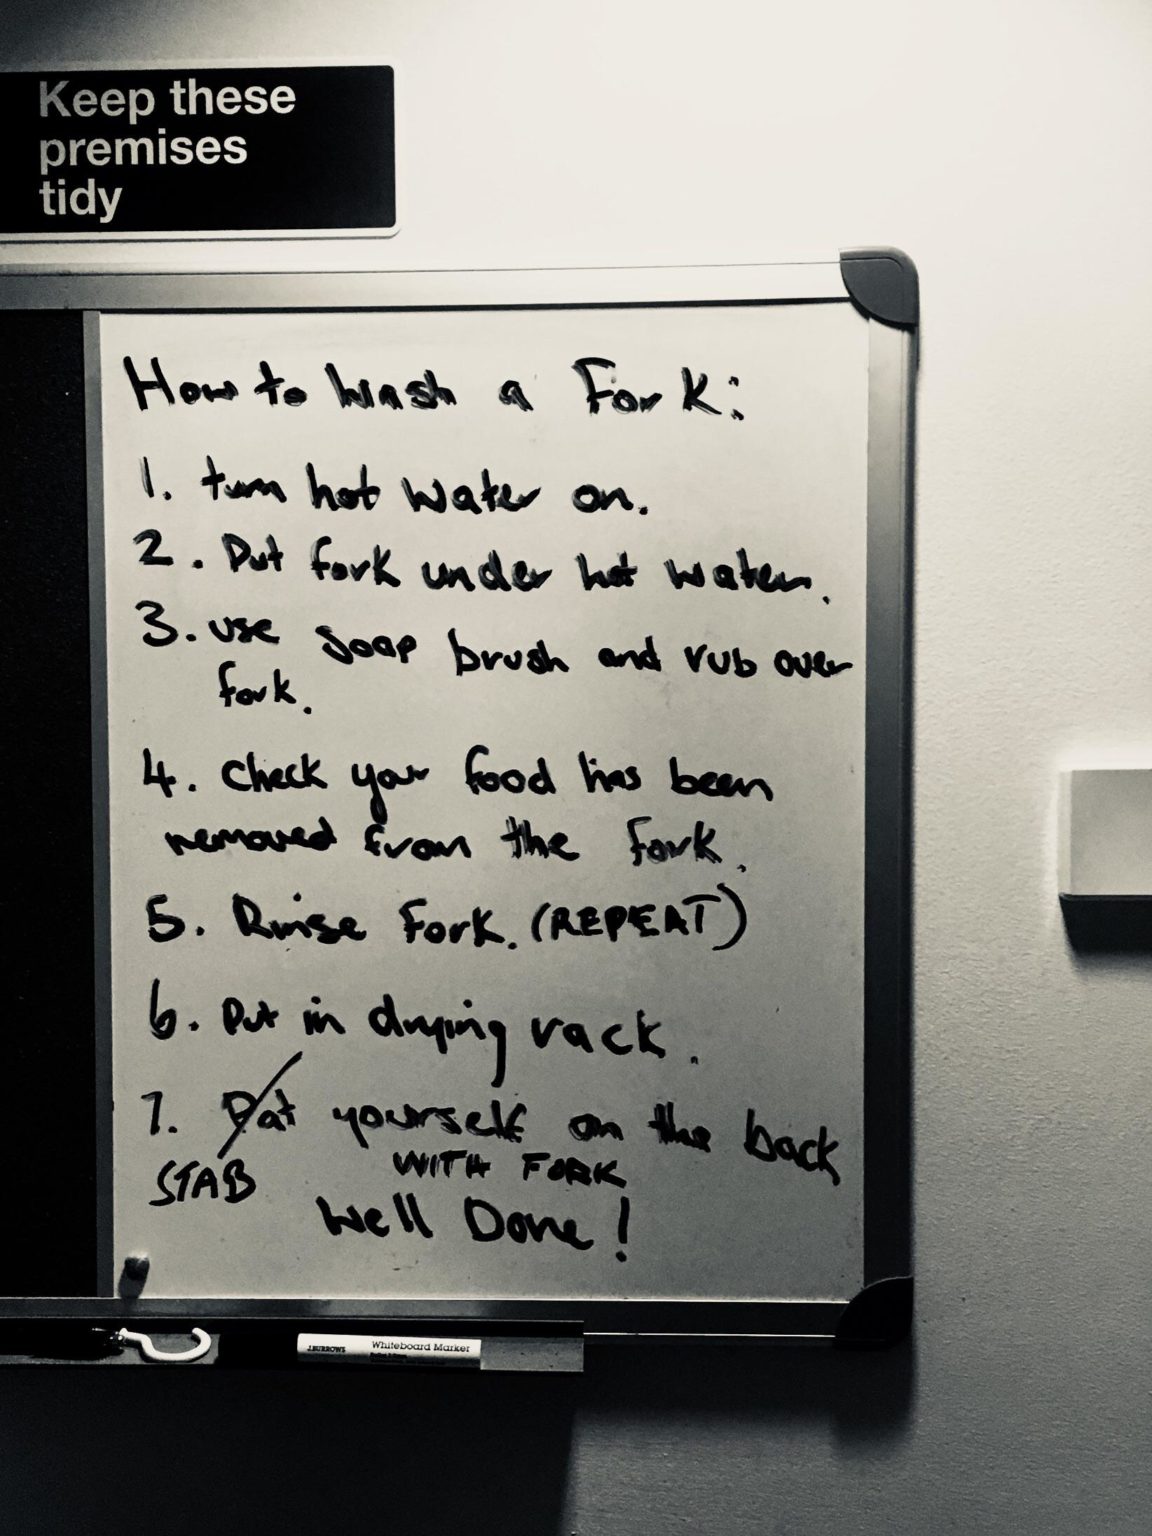 Keep these
premises
tidy
How to Wash a Fork:
1. turn hot water on.
2. Put fork under hot water.
3. use soap brush and rub over
fork.
4. Check your food has been
removed from the fork.
5. Rinse Fork. (REPEAT)
6. Put in drying rack.
7. Pat yourself on the back
STAB WITH FORK
Well Done!
J.BURROWS Whiteboard Marker